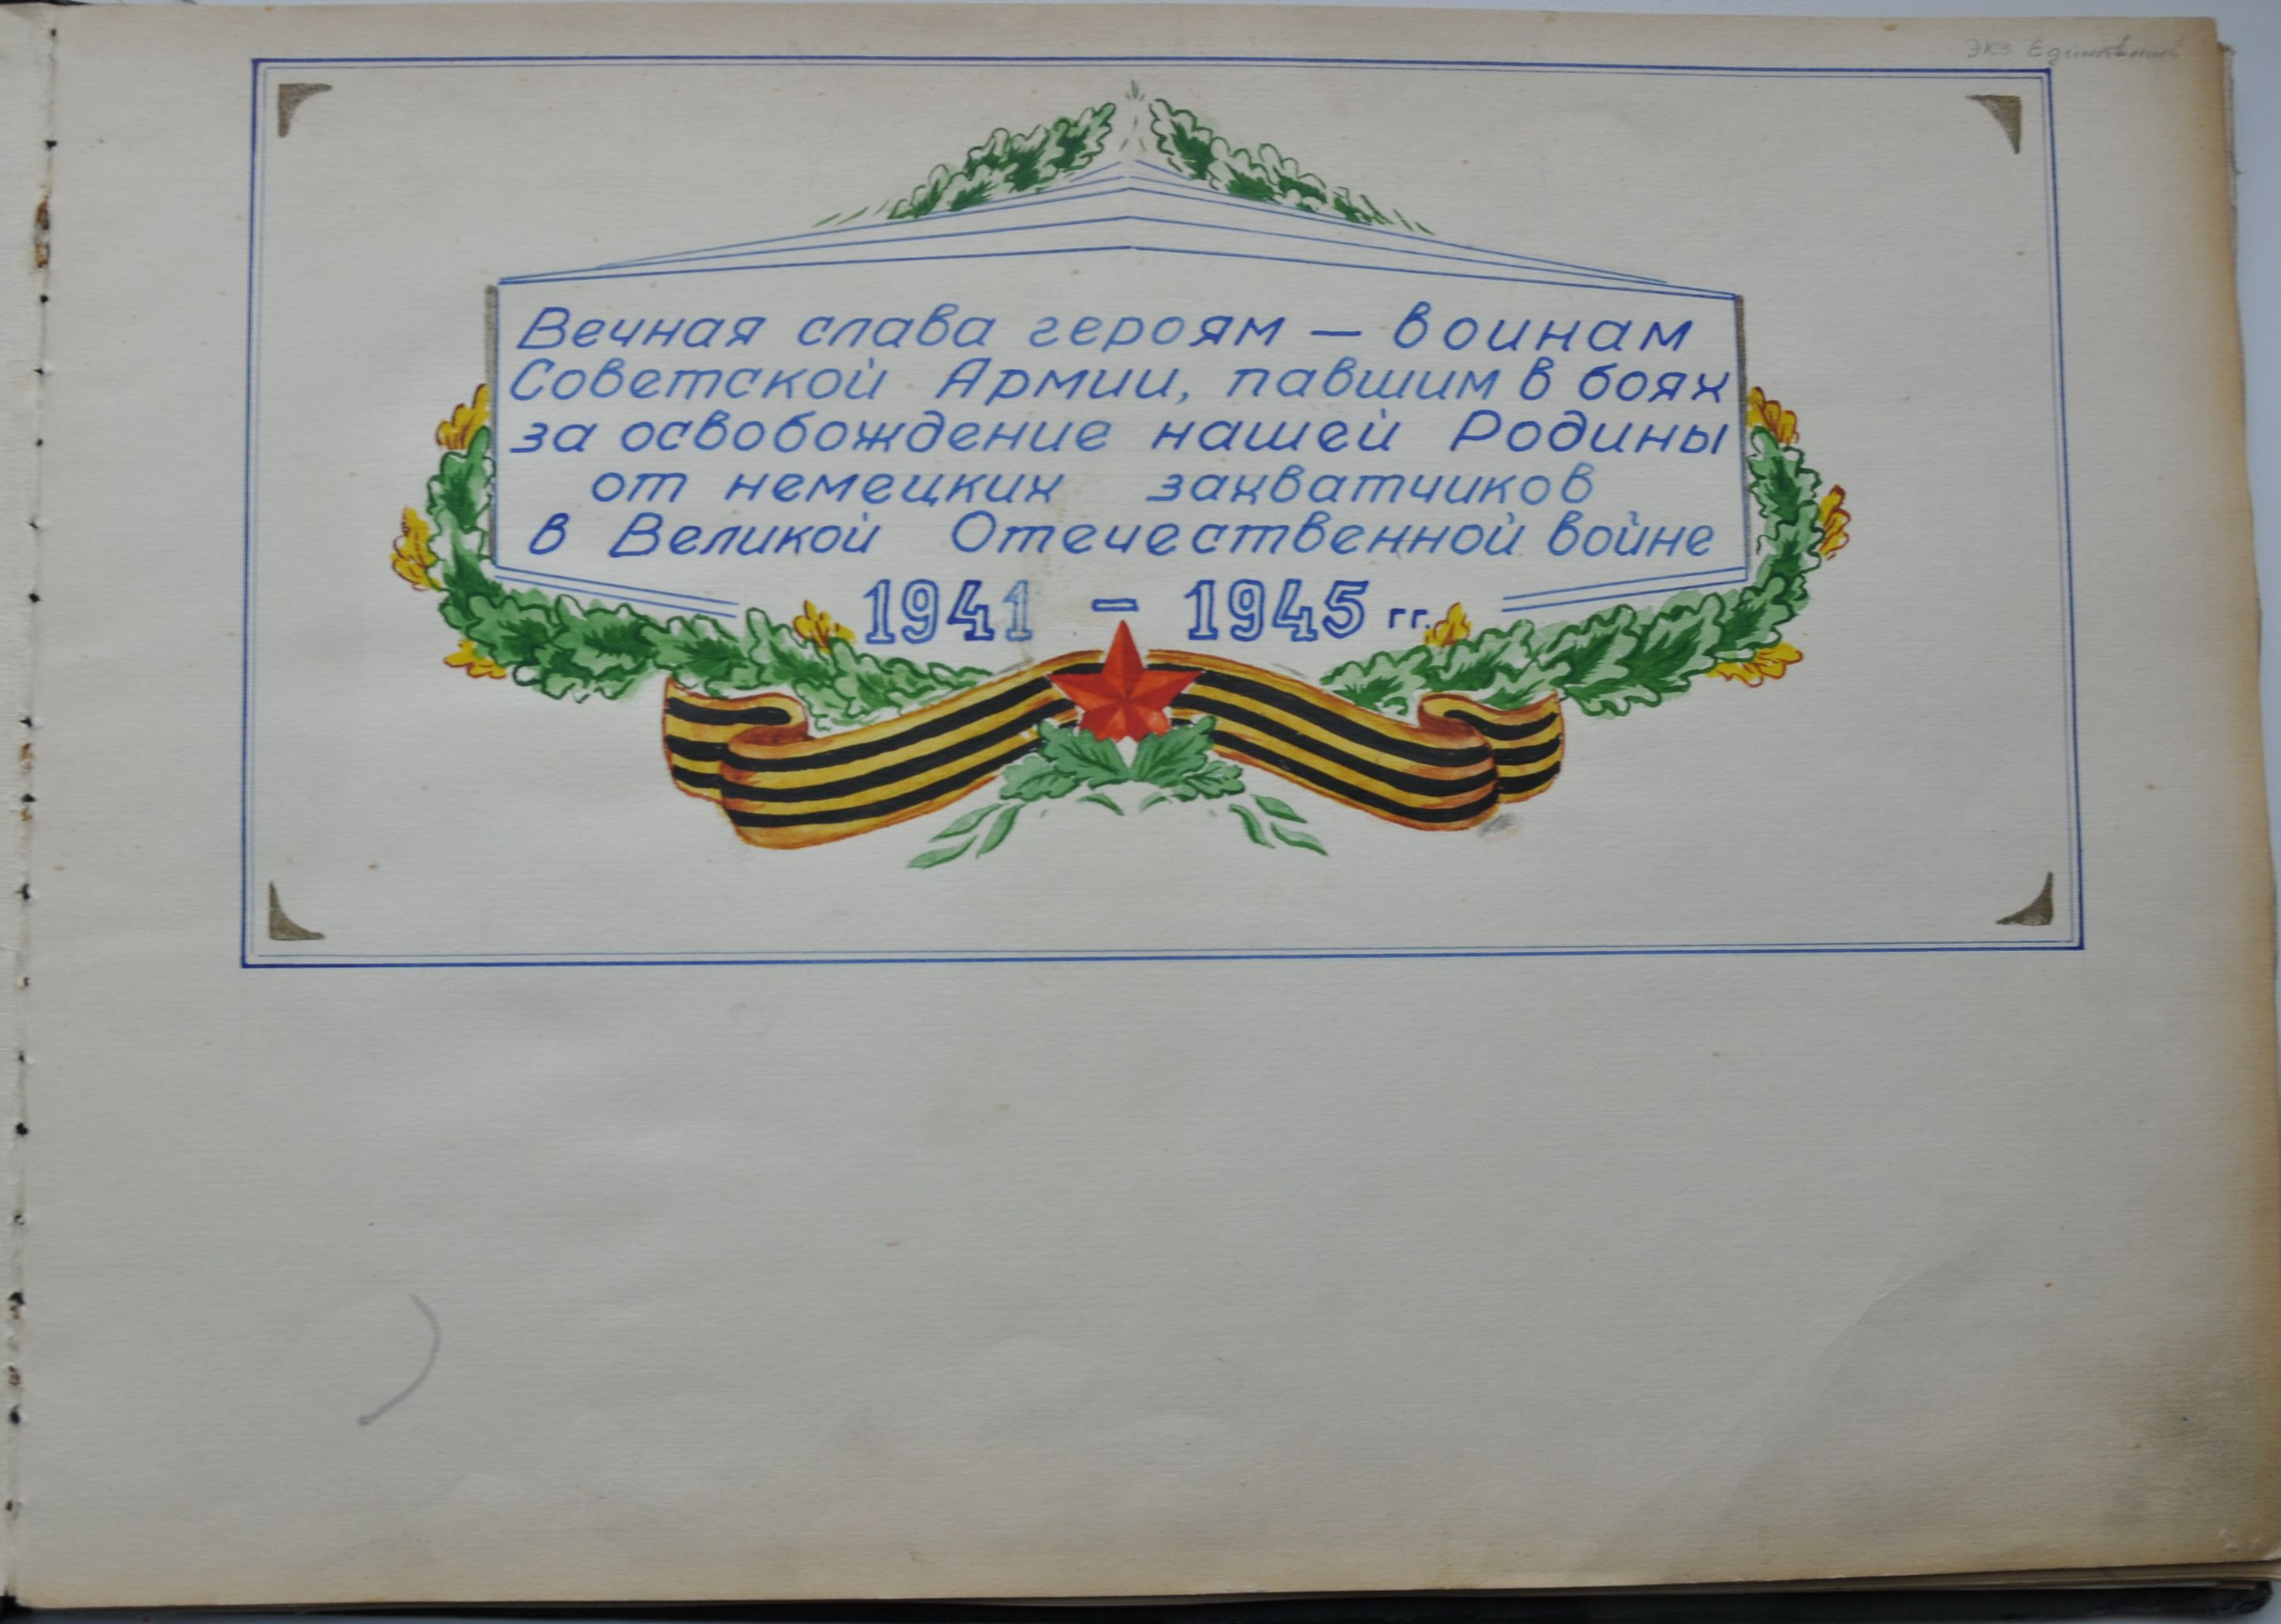 Экз Единственный
Вечная слава героям — воинам
Советской Армии, павшим в боях
за освобождение нашей Родины
от немецких захватчиков
в Великой Отечественной войне
1941 - 1945 гг.